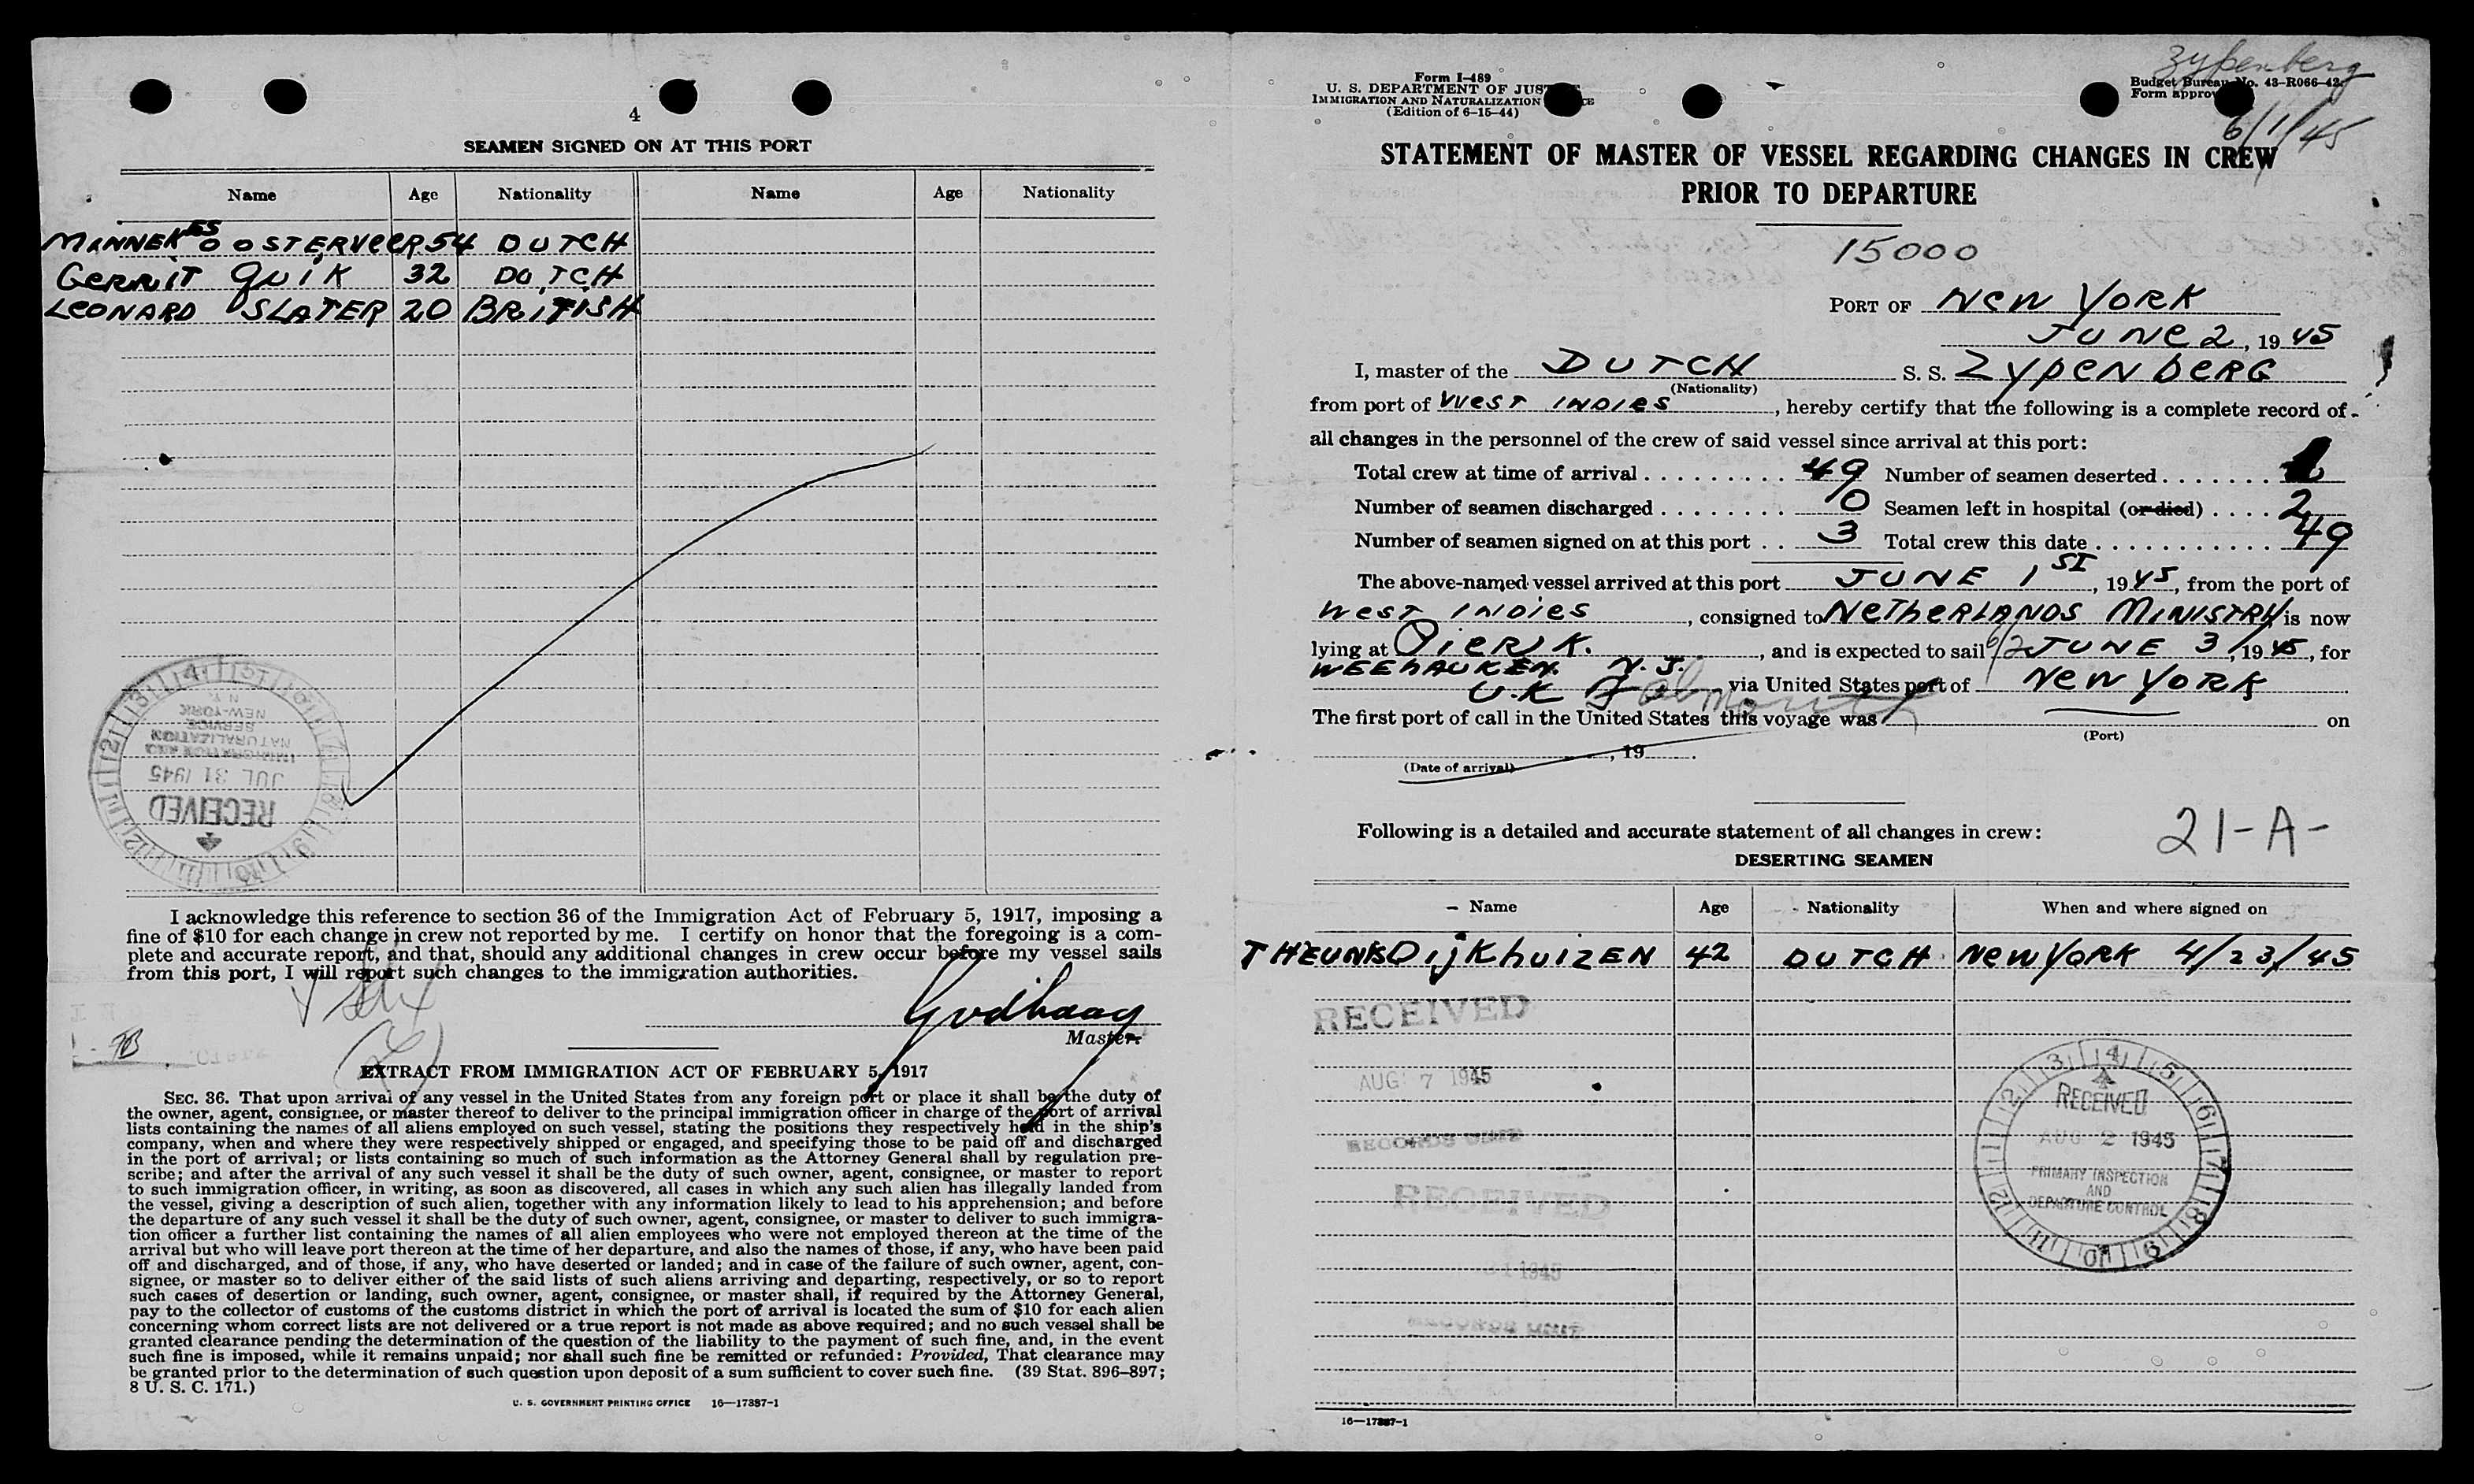 4
SEAMEN SIGNED ON AT THIS PORT
Name Age Nationality Name Age Nationality
MANNEKES OOSTERVEER 54 DUTCH
GERRIT QUIK 32 DUTCH
LEONARD SLATER 20 BRITISH
RECEIVED
JUL 31 1945
IMMIGRATION AND
NATURALIZATION
SERVICE
NEW-YORK
N.Y.
I acknowledge this reference to section 36 of the Immigration Act of February 5, 1917, imposing a
fine of $10 for each change in crew not reported by me. I certify on honor that the foregoing is a com-
plete and accurate report, and that, should any additional changes in crew occur before my vessel sails
from this port, I will report such changes to the immigration authorities.
Master.
EXTRACT FROM IMMIGRATION ACT OF FEBRUARY 5, 1917
SEC. 36. That upon arrival of any vessel in the United States from any foreign port or place it shall be the duty of
the owner, agent, consignee, or master thereof to deliver to the principal immigration officer in charge of the port of arrival
lists containing the names of all aliens employed on such vessel, stating the positions they respectively held in the ship's
company, when and where they were respectively shipped or engaged, and specifying those to be paid off and discharged
in the port of arrival; or lists containing so much of such information as the Attorney General shall by regulation pre-
scribe; and after the arrival of any such vessel it shall be the duty of such owner, agent, consignee, or master to report
to such immigration officer, in writing, as soon as discovered, all cases in which any such alien has illegally landed from
the vessel, giving a description of such alien, together with any information likely to lead to his apprehension; and before
the departure of any such vessel it shall be the duty of such owner, agent, consignee, or master to deliver to such immigra-
tion officer a further list containing the names of all alien employees who were not employed thereon at the time of the
arrival but who will leave port thereon at the time of her departure, and also the names of those, if any, who have been paid
off and discharged, and of those, if any, who have deserted or landed; and in case of the failure of such owner, agent, con-
signee, or master so to deliver either of the said lists of such aliens arriving and departing, respectively, or so to report
such cases of desertion or landing, such owner, agent, consignee, or master shall, if required by the Attorney General,
pay to the collector of customs of the customs district in which the port of arrival is located the sum of $10 for each alien
concerning whom correct lists are not delivered or a true report is not made as above required; and no such vessel shall be
granted clearance pending the determination of the question of the liability to the payment of such fine, and, in the event
such fine is imposed, while it remains unpaid; nor shall such fine be remitted or refunded: Provided, That clearance may
be granted prior to the determination of such question upon deposit of a sum sufficient to cover such fine. (39 Stat. 896–897;
8 U. S. C. 171.)
U. S. GOVERNMENT PRINTING OFFICE 16—17387-1
Zypenberg
Form I-489
U. S. DEPARTMENT OF JUST
IMMIGRATION AND NATURALIZATION CE
(Edition of 6-15-44)
Budget Bureau No. 43-R066-42.
Form approv
6/1/45
STATEMENT OF MASTER OF VESSEL REGARDING CHANGES IN CREW
PRIOR TO DEPARTURE
15000
PORT OF NEW YORK
JUNE 2, 1945
I, master of the DUTCH S. S. ZYPENBERG
(Nationality)
from port of WEST INDIES, hereby certify that the following is a complete record of
all changes in the personnel of the crew of said vessel since arrival at this port:
Total crew at time of arrival . . . . . . . . . 49 Number of seamen deserted . . . . . . . 1
Number of seamen discharged . . . . . . . . 0 Seamen left in hospital (or died) . . . . 2
Number of seamen signed on at this port . . 3 Total crew this date . . . . . . . . . . . . 49
The above-named vessel arrived at this port JUNE 1ST, 1945, from the port of
WEST INDIES, consigned to NETHERLANDS MINISTRY is now
lying at PIER K., and is expected to sail 6/2 JUNE 3, 1945, for
WEEHAUKEN. N.J.
U.K Falmouth via United States port of NEW YORK
The first port of call in the United States this voyage was on
(Port)
, 19 .
(Date of arrival)
Following is a detailed and accurate statement of all changes in crew:
21-A-
DESERTING SEAMEN
Name Age Nationality When and where signed on
THEUNIS DIJKHUIZEN 42 DUTCH NEW YORK 4/23/45
RECEIVED
AUG 7 1945
RECORDS UNIT
RECEIVED
31 1945
RECORDS UNIT
RECEIVED
AUG 2 1945
PRIMARY INSPECTION
AND
DEPARTURE CONTROL
16—17387-1